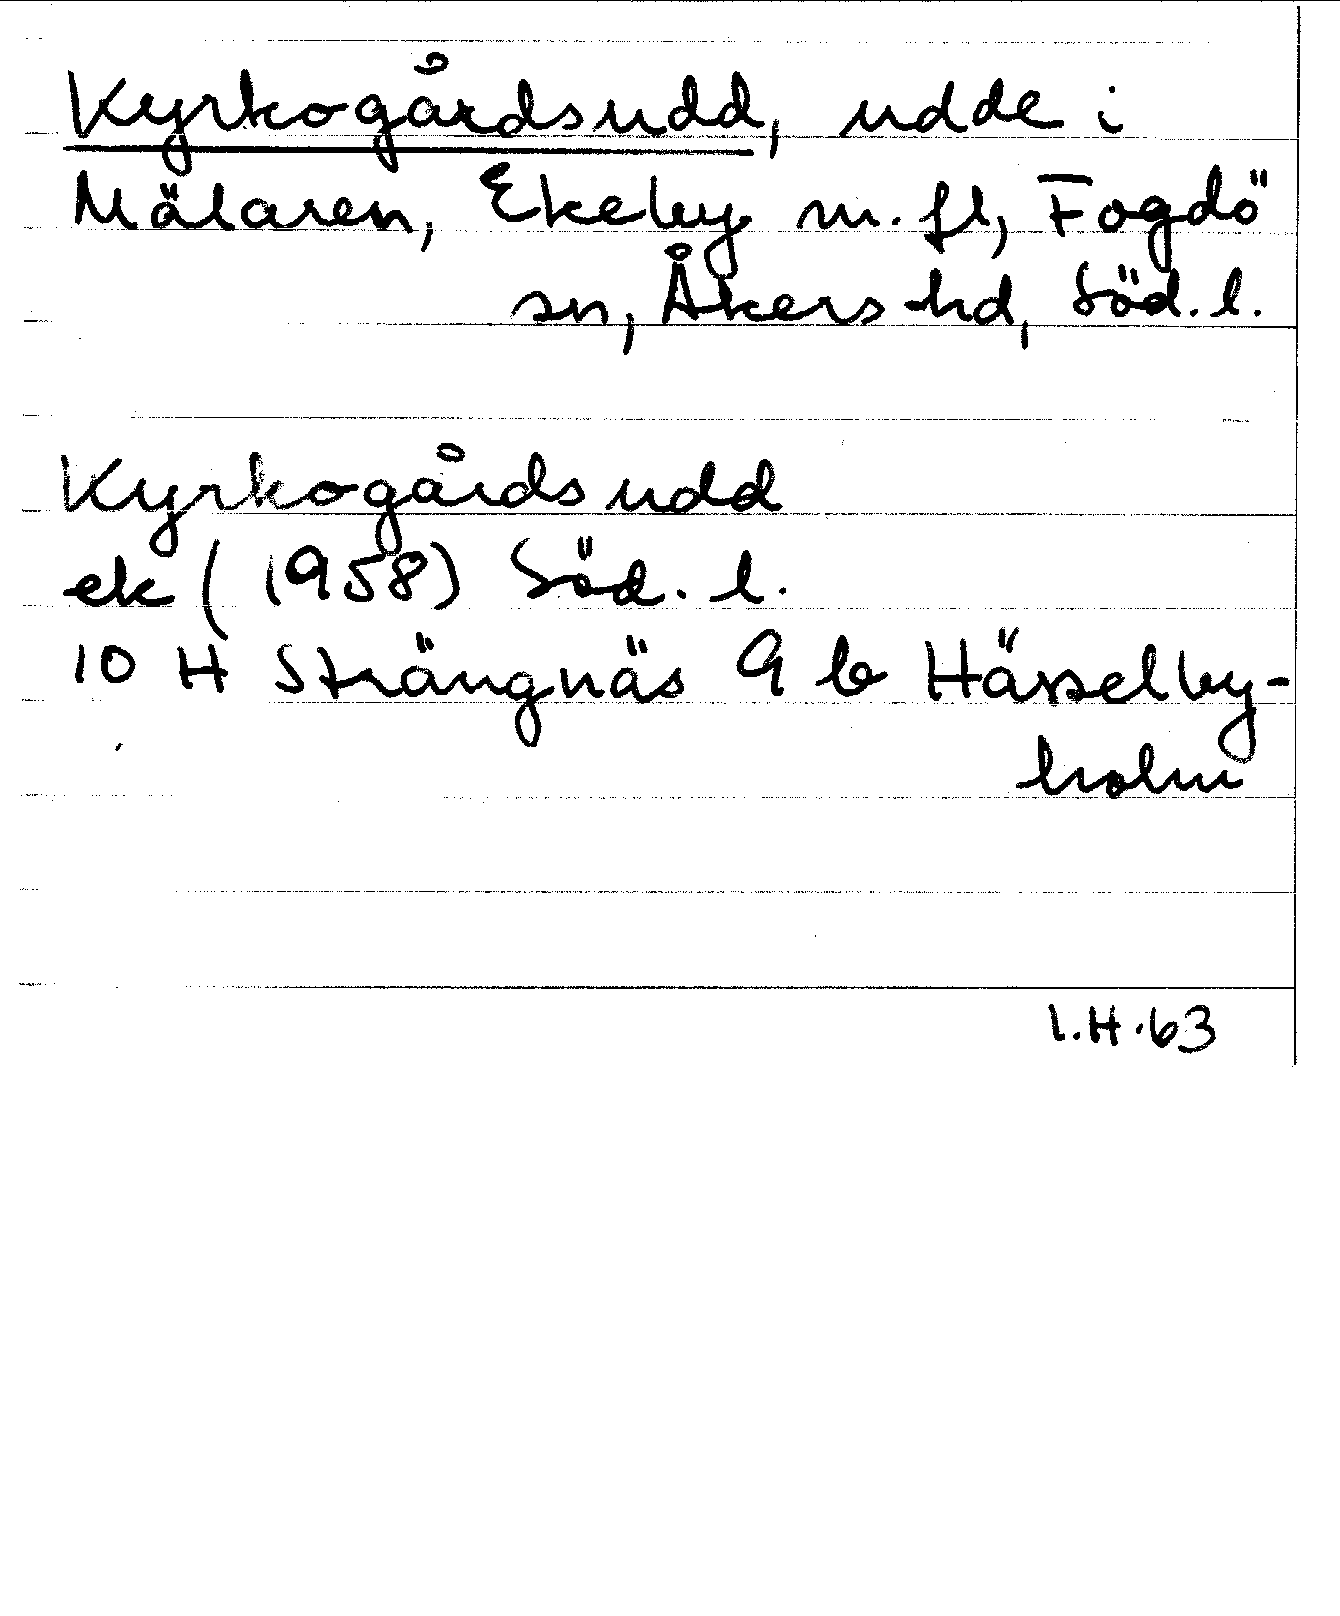 Kyrkogårdsudd, udde i
Mälaren, Ekeby m. fl, Fogdö
sn, Åkers hd, Söd. l.
Kyrkogårdsudd
ek (1958) Söd. l.
10 H Strängnäs 9 b Hässelby-
holm
I.H.63